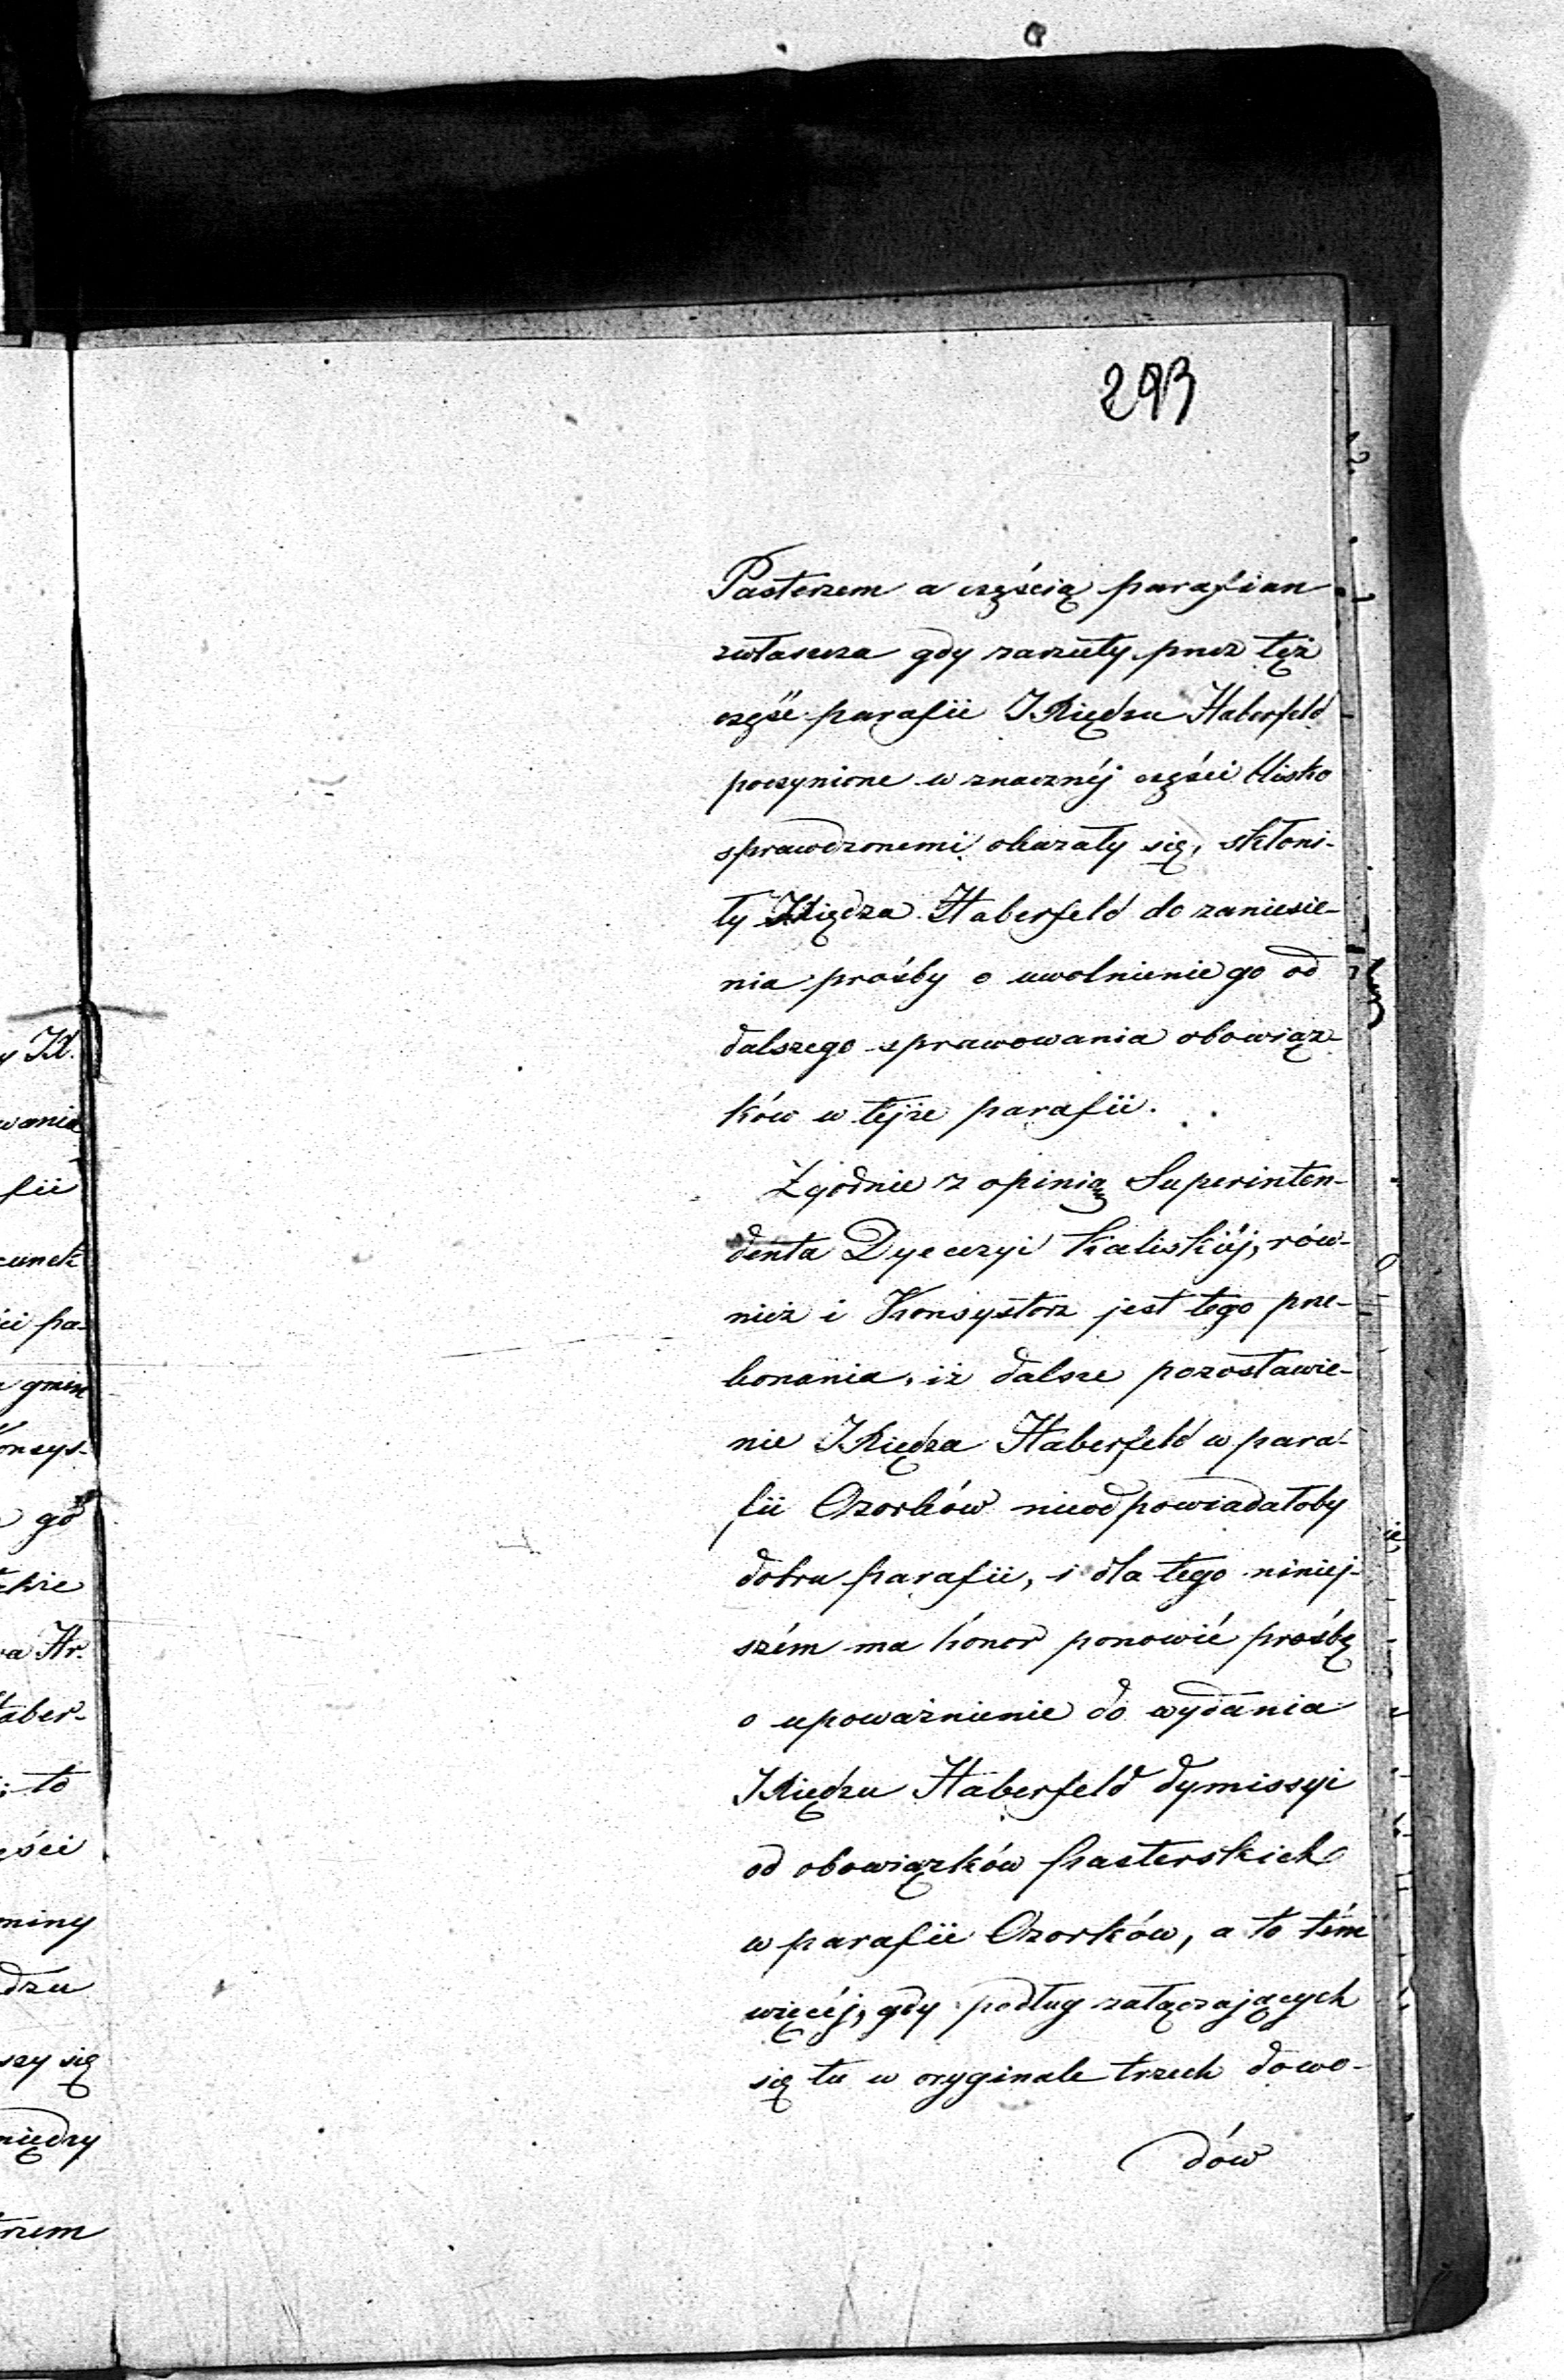 293
Pasterzem a częścią parafian
zwłaszcza gdy zarzuty przez tęż
część parafii Xiędzu Haberfeld
poczynione w znacznéj części blisko
sprawdzonemi okazały się, skłoni-
ły Xiędza Haberfeld do zaniesie-
nia prośby o uwolnienie go od
dalszego sprawowania obowiąz-
ków w tejże parafii.
Zgodnie z opinią Superinten-
denta Dyecezyi Kaliskiéj, rów-
nież i Konsystorz jest tego prze-
konania, iż dalsze pozostawie-
nie Xiędza Haberfeld w para-
fii Ozorków nieodpowiadałoby
dobru parafii, i dla tego niniej-
szém ma honor ponowić prośbę
o upoważnienie do wydania
Xiędzu Haberfeld dymissyi
od obowiązków pasterskich
w parafii Ozorków, a to tém
więcéj, gdy podług załączających
się tu w oryginale trzech dowo-
dów